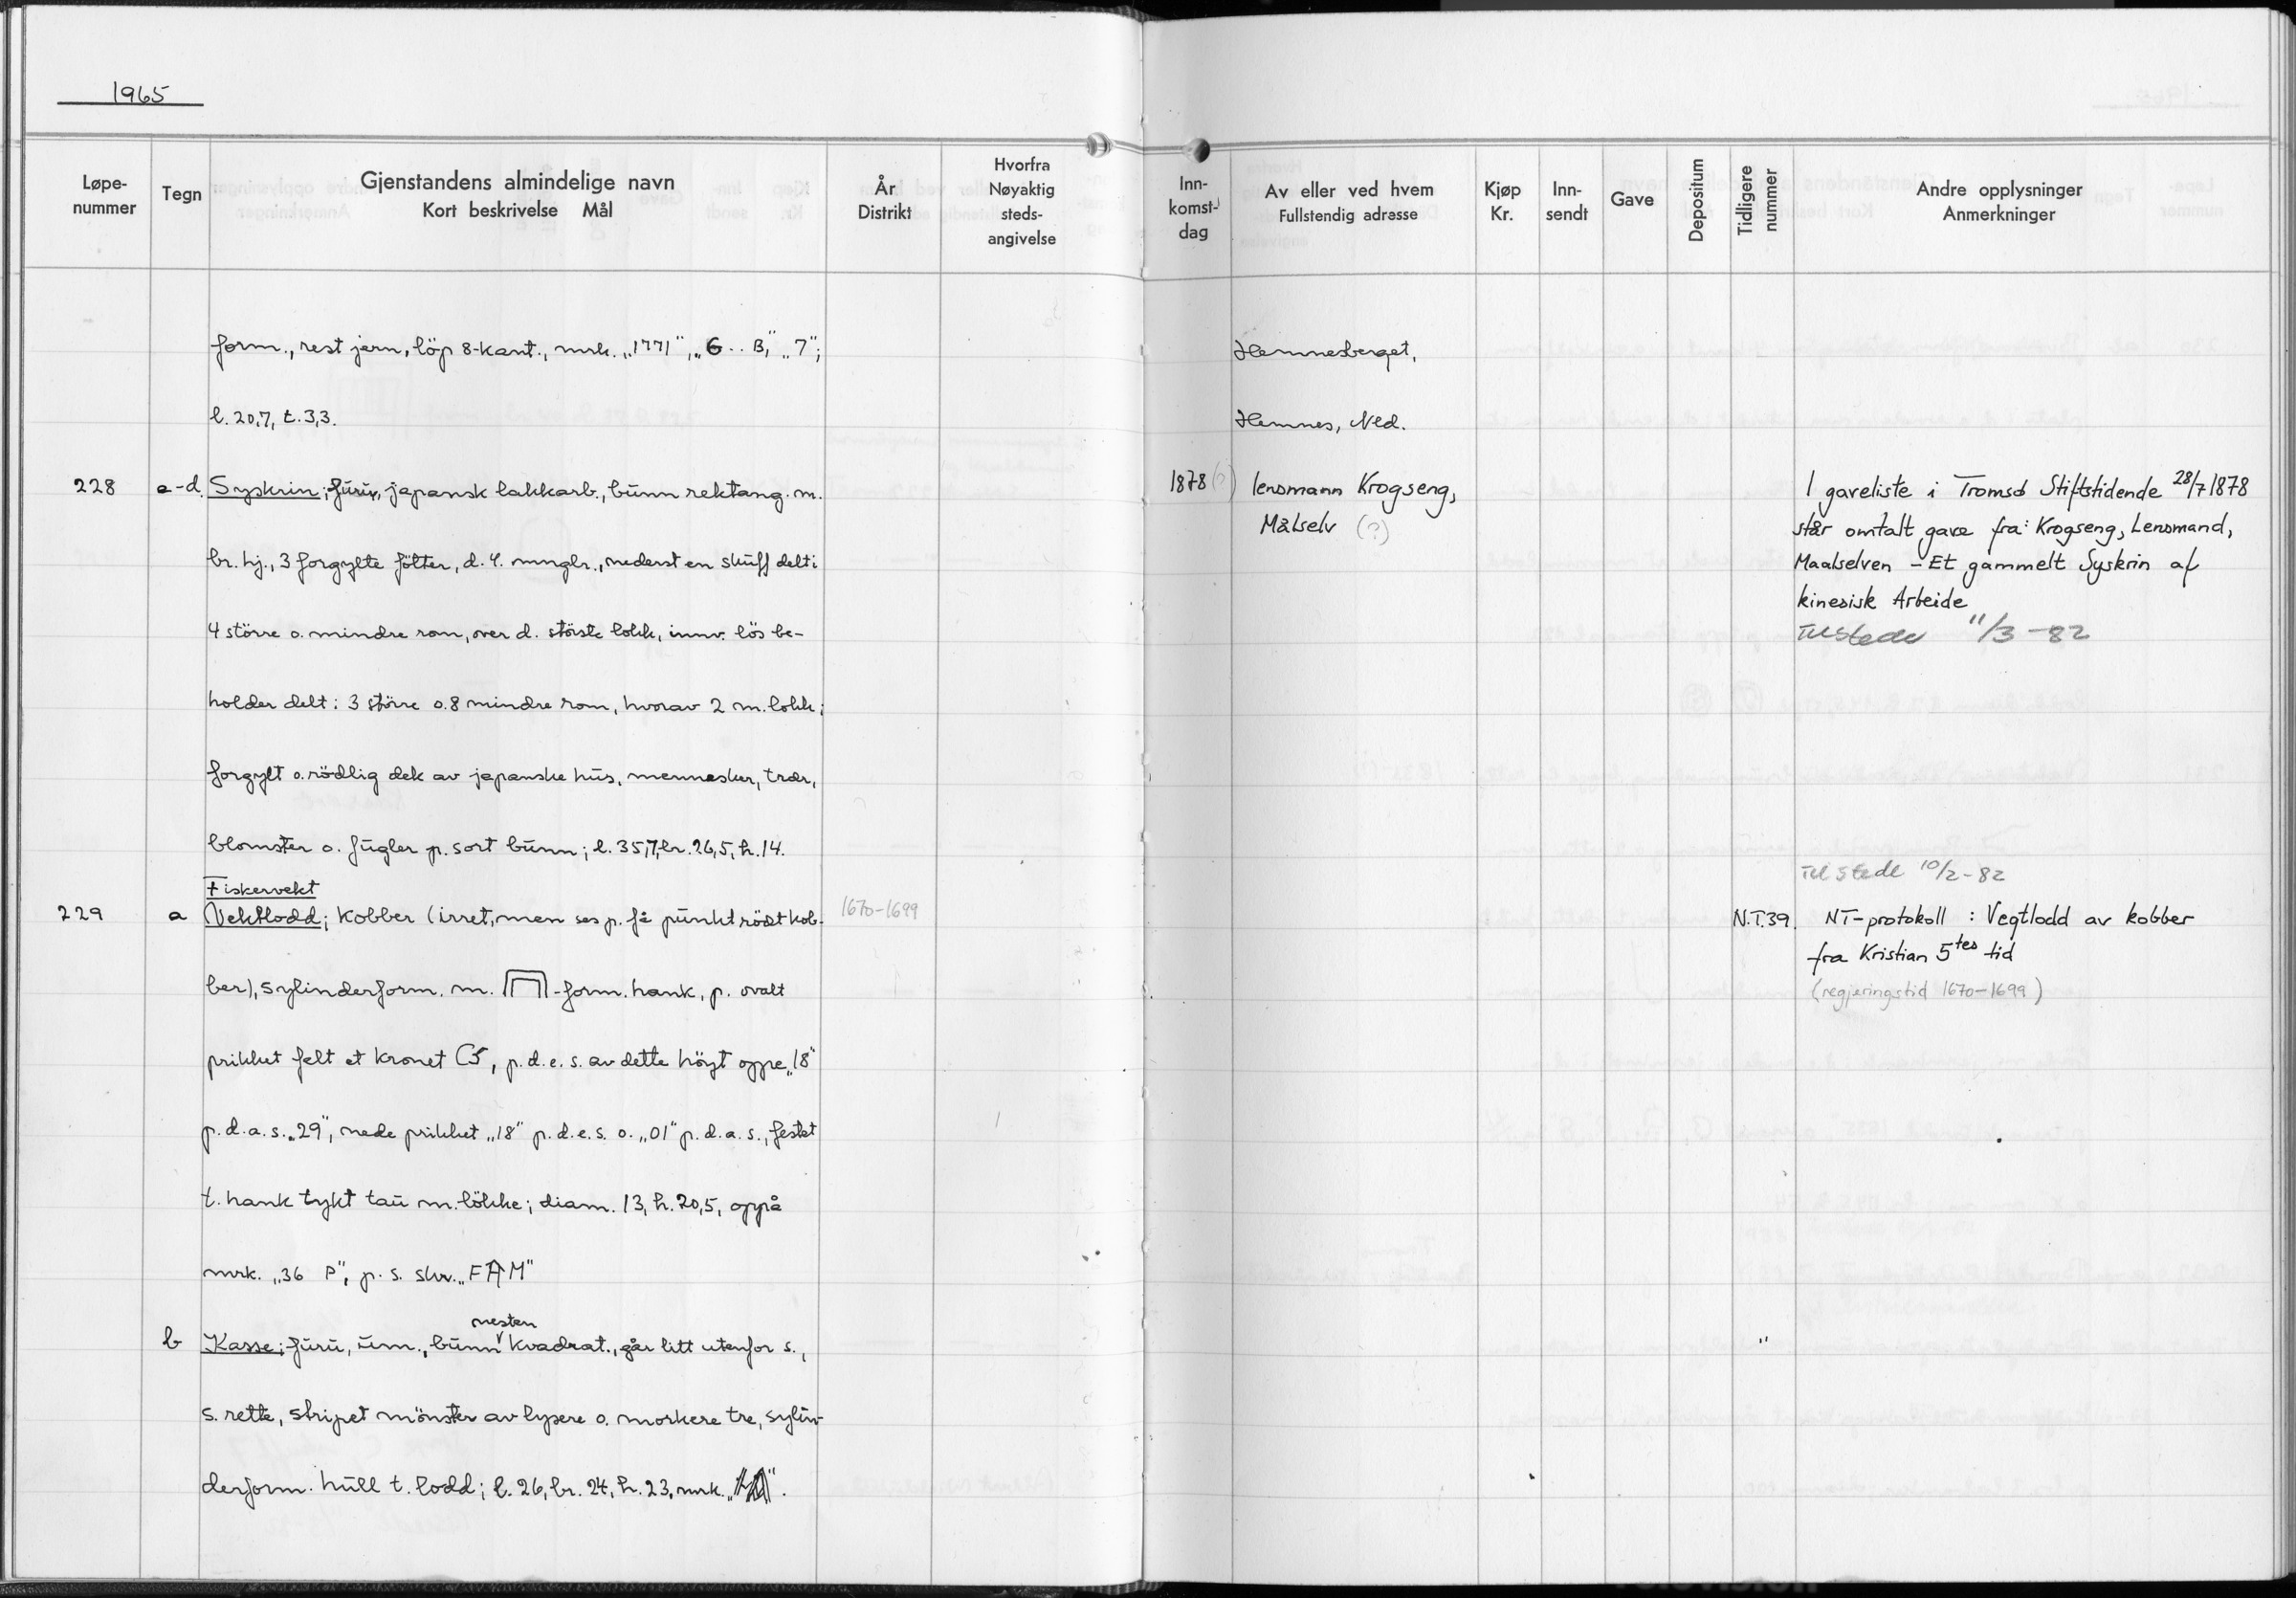 1965
Løpe-
nummer
Tegn
Gjenstandens almindelige navn
Kort beskrivelse Mål
År
Distrikt
Hvorfra
Nøyaktig
steds-
angivelse
Inn-
komst-
dag
Av eller ved hvem
Fullstendig adresse
Kjøp
Kr.
Inn-
sendt
Gave
Depositum
Tidligere
nummer
Andre opplysninger
Anmerkninger
form., rest jern, löp 8-kant., mrk. „1771", „G .. B", „7";
l. 20,7, t. 3,3.
Hemnesberget,
Hemnes, Nld.
228 a-d. Syskrin; furu, japansk lakkarb., bunn rektang. m.
br. hj., 3 forgylte fötter, d. 4. mnglr., nederst en skuff delt i
4 större o. mindre rom, over d. störste lokk, innv. lös be-
holder delt i 3 större o. 8 mindre rom, hvorav 2 m. lokk;
forgylt o. rödlig dek av japanske hus, mennesker, trær,
blomster o. fugler p. sort bunn; l. 35,7, br. 26,5, h. 14.
1878 (?) lensmann Krogseng,
Målselv (?)
I gaveliste i Tromsø Stiftstidende 28/7 1878
står omtalt gave fra: Krogseng, Lensmand,
Maalselven - Et gammelt Syskrin af
kinesisk Arbeide
Tilstede 11/3 -82
Fiskervekt
229 a Vektlodd; kobber (irret, men ses p. få punkt rödt kob-
ber), sylinderform. m. -form. hank, p. ovalt
prikket felt et kronet C5, p. d. e. s. av dette höyt oppe „18"
p. d. a. s. „29", nede prikket „18" p. d. e. s. o. „01" p. d. a. s., festet
t. hank tykt tau m. lökke; diam. 13, h. 20,5, oppå
mrk. „36 P", p. s. skr. „FAM"
1670-1699
Tilstede 10/2 - 82
N.T.39. NT-protokoll : Vegtlodd av kobber
fra Kristian 5tes tid
(regjeringstid 1670-1699)
nesten
b Kasse; furu, um., bunn kvadrat., går litt utenfor s.,
s. rette, stripet mönster av lysere o. morkere tre, sylin-
derform. hull t. lodd; l. 26, br. 24, h. 23, mrk. „ ".
"